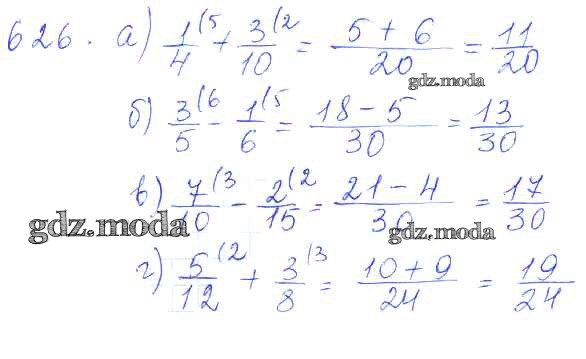 626. а) 1/4(5 + 3/10(2 = 5 + 6/20 = 11/20
gdz.moda
б) 3/5(6 - 1/6(5 = 18 - 5/30 = 13/30
в) 7/10(3 - 2/15(2 = 21 - 4/30 = 17/30
gdz.moda gdz.moda
г) 5/12(2 + 3/8(3 = 10 + 9/24 = 19/24